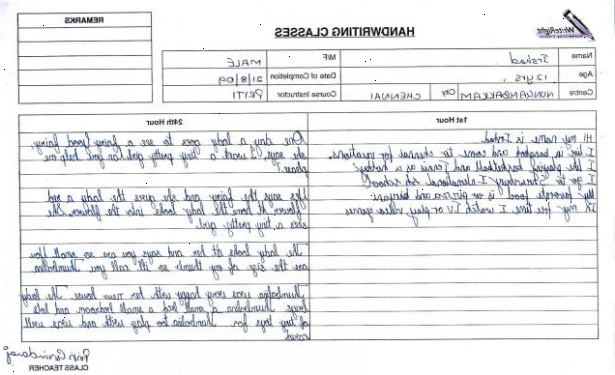 WriteRight
HANDWRITING CLASSES
REMARKS
Name Irshad M/F MALE
Age 12 yrs Date of Completion 21/8/09
Centre NUNGAMBAKKAM City CHENNAI Course Instructor PRITI
1st Hour
Hi my name is Irshad.
I live in and come to chennai for vacations.
I like playing basketball and Tennis as a hobby
I go to International Ind school
My favorite food is pizza and biriyani
IN my free time I watch TV or play video games
24th Hour
One day a lady goes to see a fairy good fairy,
she says, I want a tiny pretty girl can you help me
please?
Yes says the fairy and she gives the lady a red
flower. At home the lady looks into the flower. She
sees a tiny pretty girl
The lady looks at her and says you are so small You
are the size of my thumb so I'll call you Thumbelina
Thumbelina was very happy with her new house. The lady
buys Thumbelina a small bed a small bedroom, and lots
of tiny toys for Thumbelina to play with and was well
CLASS TEACHER